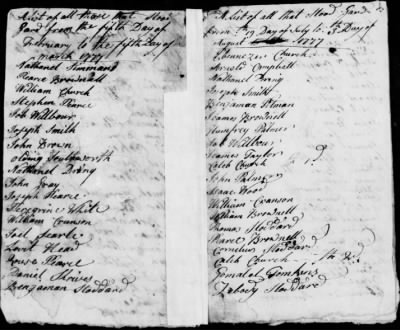 A List of all those that Stood
Gard from the fifth Day of
February to the fifth Day of
march 1777
Nathanel Simmand
Pearce Brownell
William Church
Stephen Pearce
Job Wilbour
Joseph Smith
John Brown
Nathanel Dring
John Gray
Joseph Pearce
Peregrine White
William Crunson
Joel Searle
Lovit Head
Rouse Pearce
Daniel Shrives
Benjaman Stoddard
A List of all that Stood Gard
from 19 Day of July to th 5 Day of
August 1777
Ebenezer Church
Arnold Campbell
Nathanel Dring
Joseph Smith
Benjaman
James Brownell
Humfrey Palmer
Job Wilbour
James Taylor
Caleb Church
John Palmer
Isaac Wood
William Crunson
William Brownell
Thomas Stoddard
Brownell
Cornelius Stoddard
Caleb Church
Gamalel Tomkins
Zebedy Stoddard